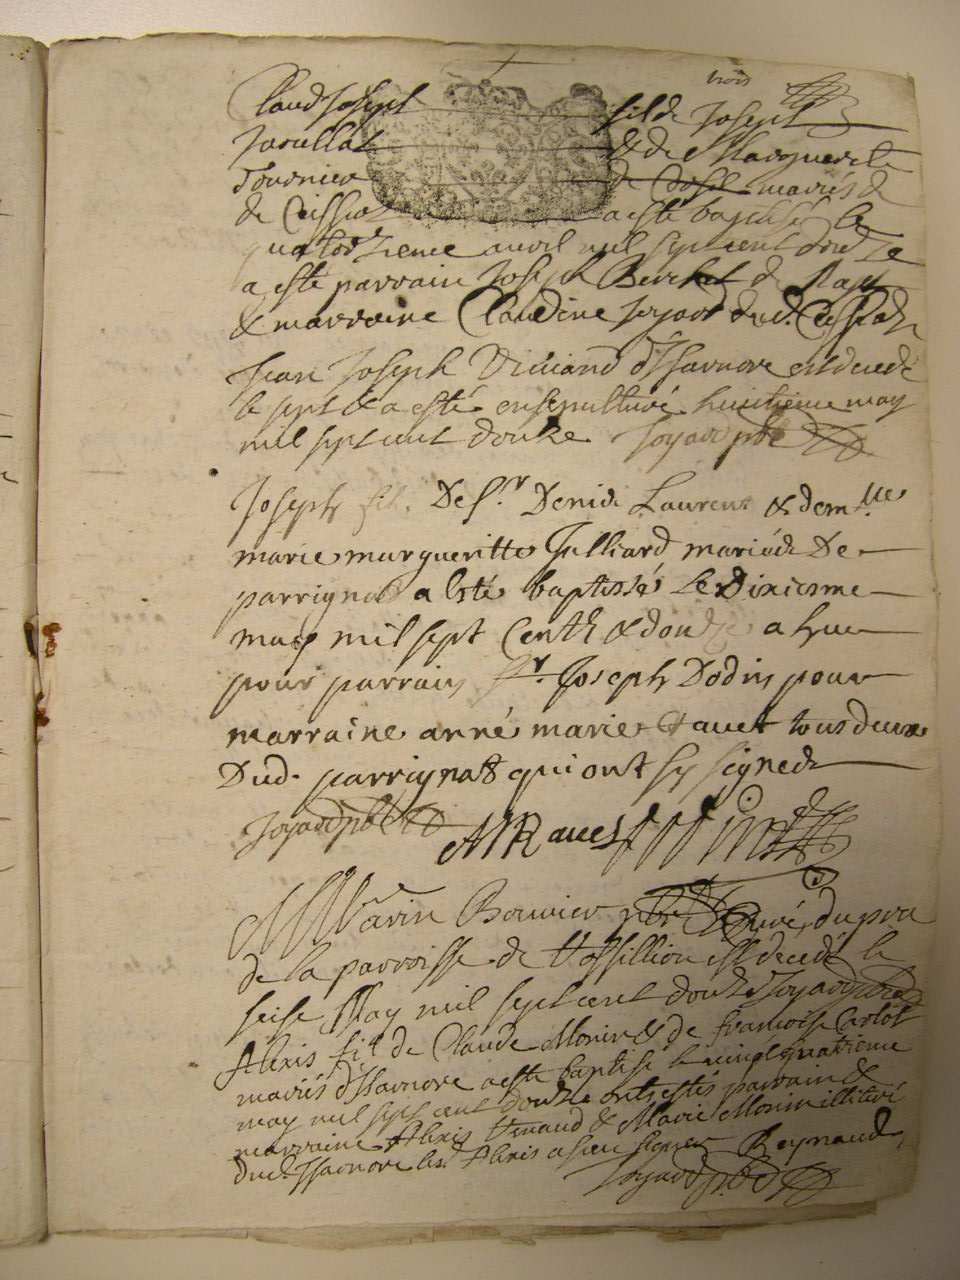 trois
Claud Joseph fil de Joseph
& de Marguerite
de mariés
de a esté baptisé le
quatorzieme avril mil sept cent douze
a esté parrain Joseph Berchet de
& marraine Claudine Joyard dud.
Jean Joseph d'Isarnore est decedé
le sept & a esté ensepulturé huitieme may
mil sept cent douze Joyard pbr
Joseph fil. De sr Denid Laurent & demlle
marie margueritte Julliard mariéds De
parrignat a Esté baptissé Le Dixiesme
may mil sept Centh & douze a heu
pour parrain sr. Joseph Dodin pour
marraine anné marie Ravet tous deux
Dud. parrignat qui ont sy signeds
Joyard pbr AMRavet
Marin Bouvier pbre Curé du pra
de la parroisse de Vossillion est decedé le
seise May mil sept cent douze Joyard pbr
Alexis fil de Claude Monin & de francoise Carlot
mariés d'Isarnore a esté baptisé le vingt quatrieme
may mil sept cent douze ont estés parrain &
marraine Alexis Renaud & Marie Monin illiteré
dud. Isarnore led. Alexis a sceu signer Reynaud
Joyard pbr